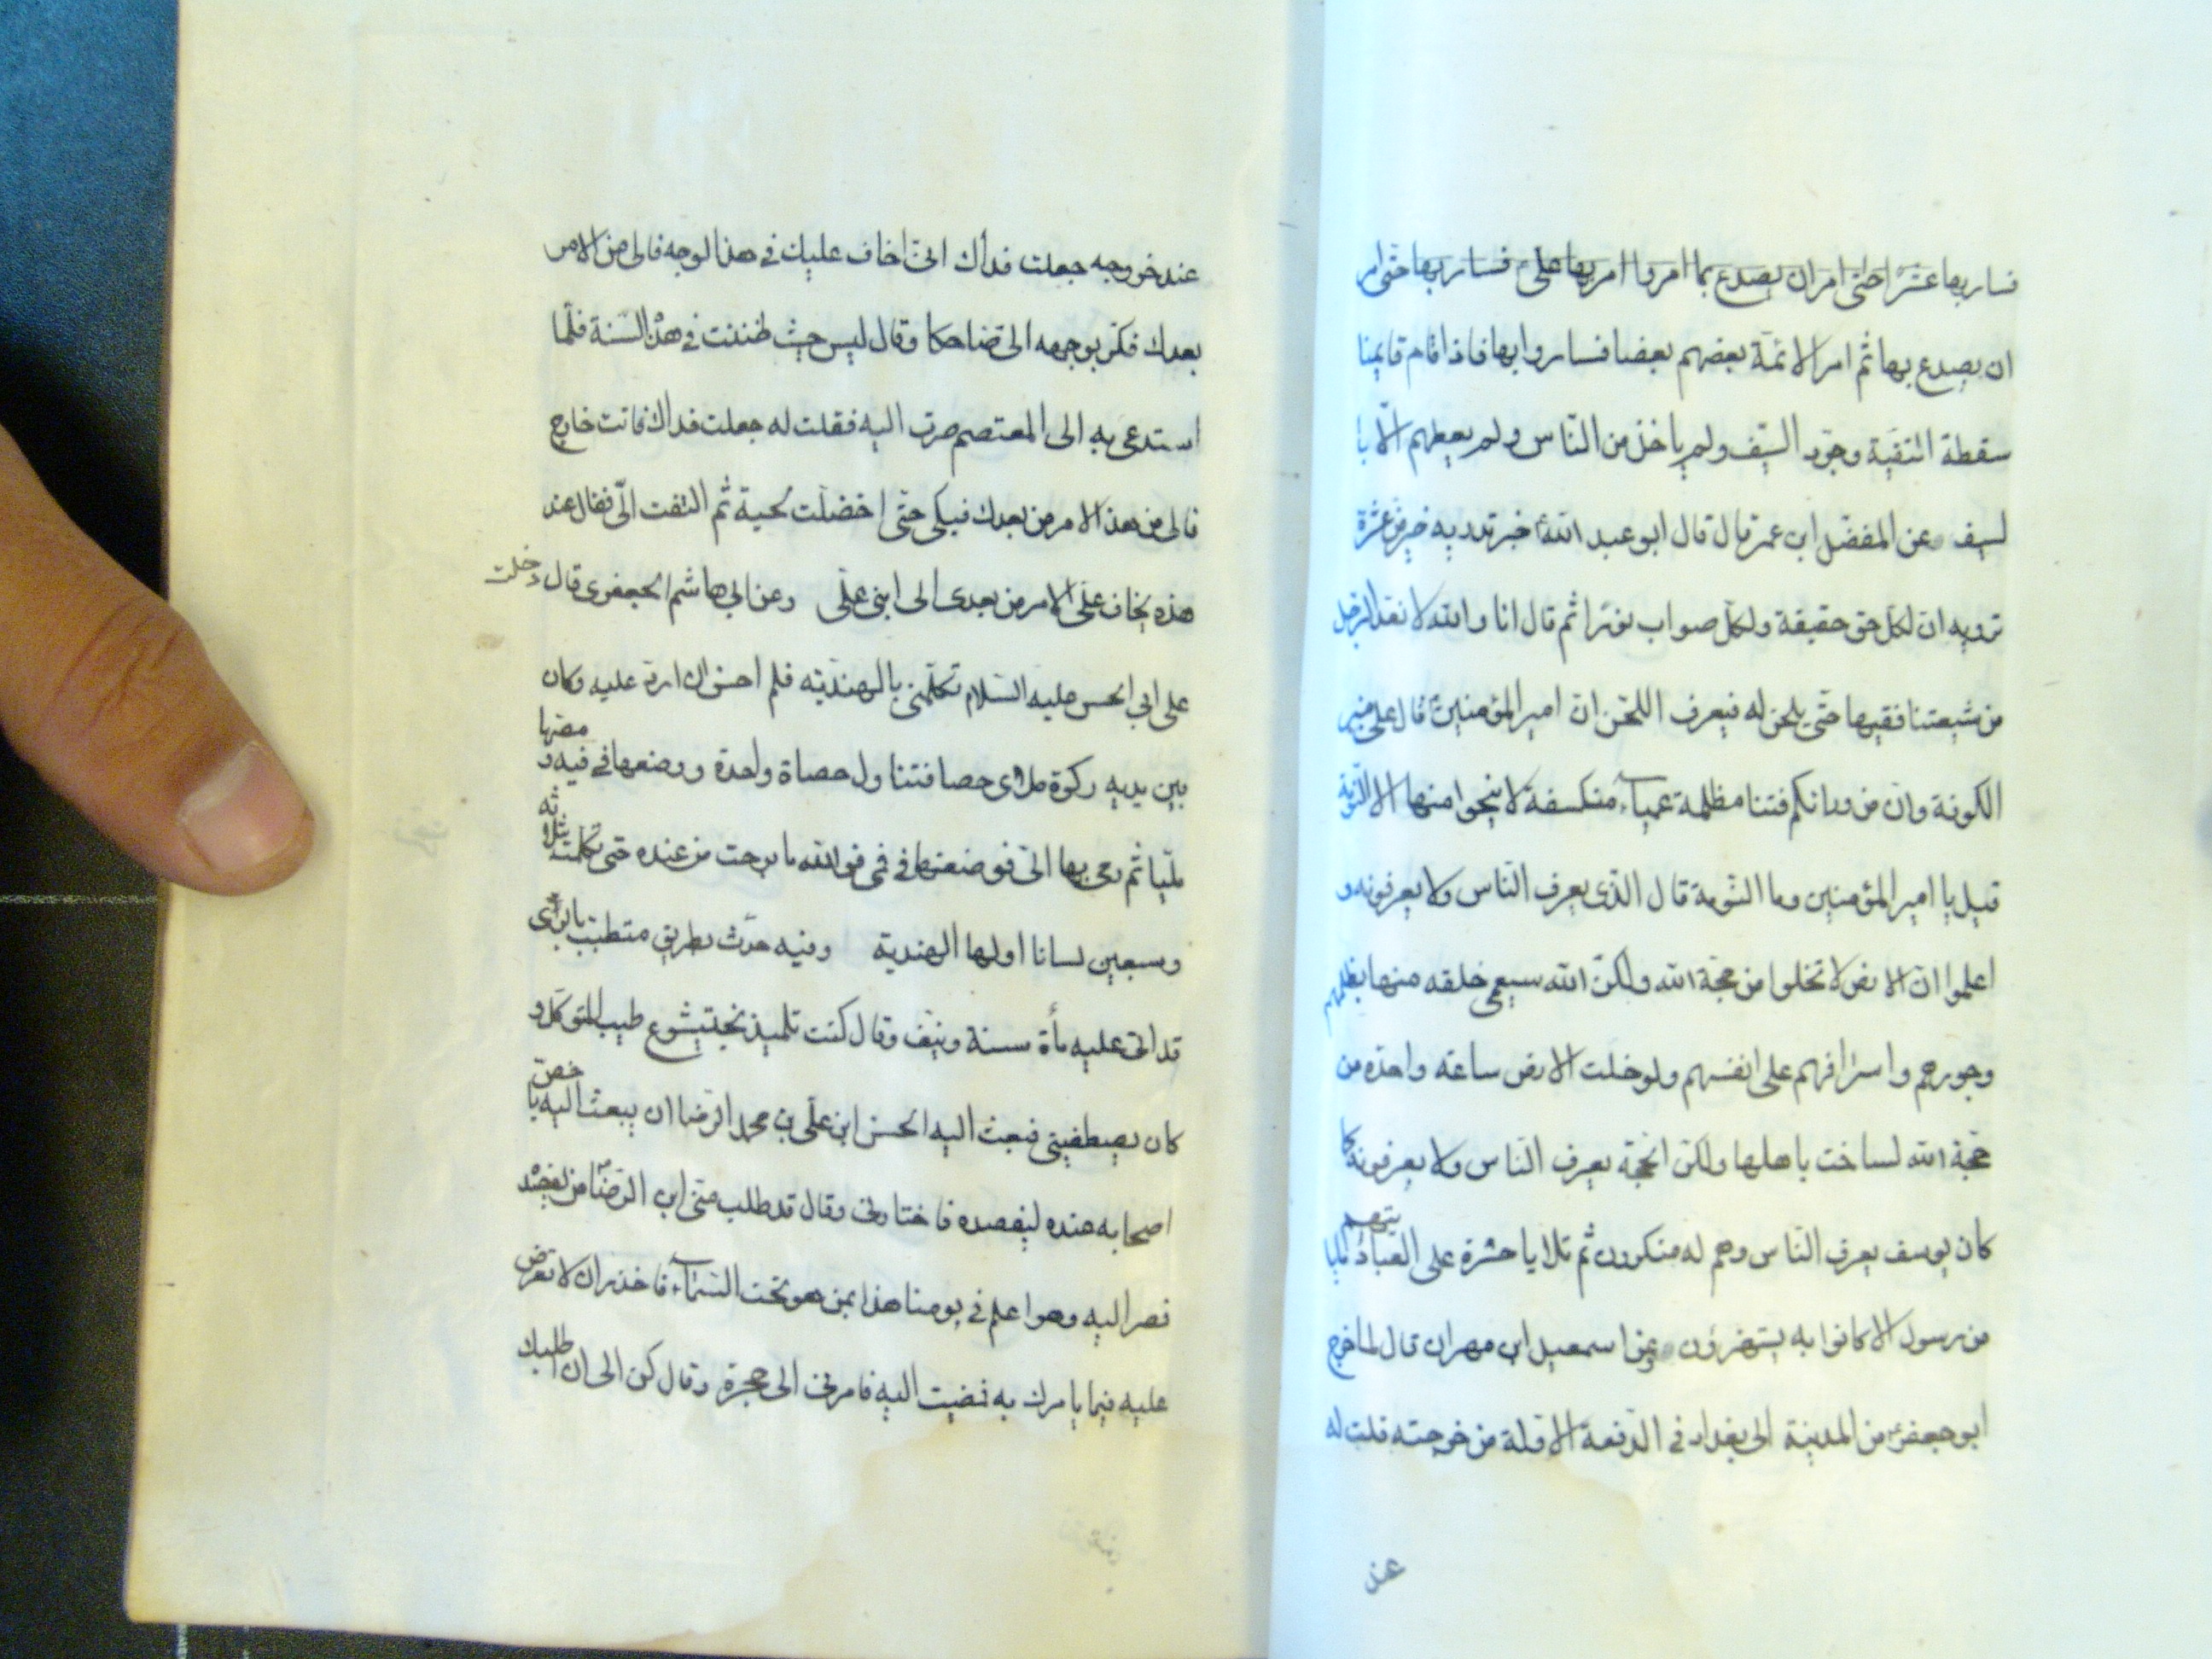 فسار بها عشرا حتى امر ان يصدع بما امر وا امر بها على فسار بها حتى امر
ان يصدع بها ثم امر الائمة بعضهم بعضا فساروا بها فاذا قام قايمنا
سقطة التقية وجرد السيف ولم ياخذ من الناس ولم يعطهم الا با
لسيف عن المفضل ابن عمر قال قال ابو عبد الله خبر تدريه خير من عشرة
ترويه ان لكل حق حقيقة ولكل صواب نورا ثم قال انا والله لا نعد الرجل
من شيعتنا فقيها حتى يلحن له فيعرف اللحن ان امير المؤمنين قال على منبر
الكوفة وان من ورائكم فتنا مظلمة عمياء منكسفة لا ينجوا منها الا النومة
قيل يا امير المؤمنين وما النومة قال الذى يعرف الناس ولا يعرفونه و
اعلموا ان الارض لا تخلوا من حجة الله ولكن الله سيعمى خلقه منها بظلمهم
وجورهم واسرافهم على انفسهم ولو خلت الارض ساعة واحدة من
حجة الله لساخت باهلها ولكن الحجة يعرف الناس ولا يعرفونه كما
كان يوسف يعرف الناس وهم له منكرون ثم تلا يا حسرة على العباد ما ياتيهم
من رسول الا كانوا به يستهزؤن وعن اسمعيل ابن مهران قال لما خرج
ابو جعفر من المدينة الى بغداد في الدفعة الاولة من خرجته قلت له
عند
عند خروجه جعلت فداك انى اخاف عليك في هذا لوجه فالى من الامر
بعدك فكر بوجهه الى ضاحكا وقال ليس حيث ظننت في هذه السنة فلما
استدعى به الى المعتصم صرت اليه فقلت له جعلت فداك فانت خارج
فالى من هذا الامر من بعدك فبكى حتى اخضلت لحية ثم التفت الى فقال عند
هذه يخاف على الامر من بعدى الى ابنى على وعن ابي هاشم الجعفرى قال دخلت
على ابي الحسن عليه السلام تكلمنى بالهندية فلم احسن ان ارد عليه وكان
بين يديه ركوة ملاى حصا فتناول حصاة واحدة ووضعها في فيه و مصها
مليا ثم رمى بها الى فوضعتها في فمى فوالله ما برحت من عنده حتى تكلمت بثلاثه
وسبعين لسانا اولها الهندية وفيه حدث بطريق متطبب بالرى
قد اتى عليه مأة سنة ونيف وقال كنت تلميذ بختيشوع طبيب المتوكل و
كان يصطفينى فبعث اليه الحسن ابن على بن محمد الرضا ان يبعث اليه باخص
اصحابه عنده ليفصده فاختارنى وقال قد طلب منى ابن الرضا من يفصده
فصر اليه وهو اعلم في يومنا هذا بمن هو تحت السماء فاحذر ان لا تعرض
عليه فيما يامرك به فمضيت اليه فامرنى الى حجرة وقال كن الى ان اطلبك